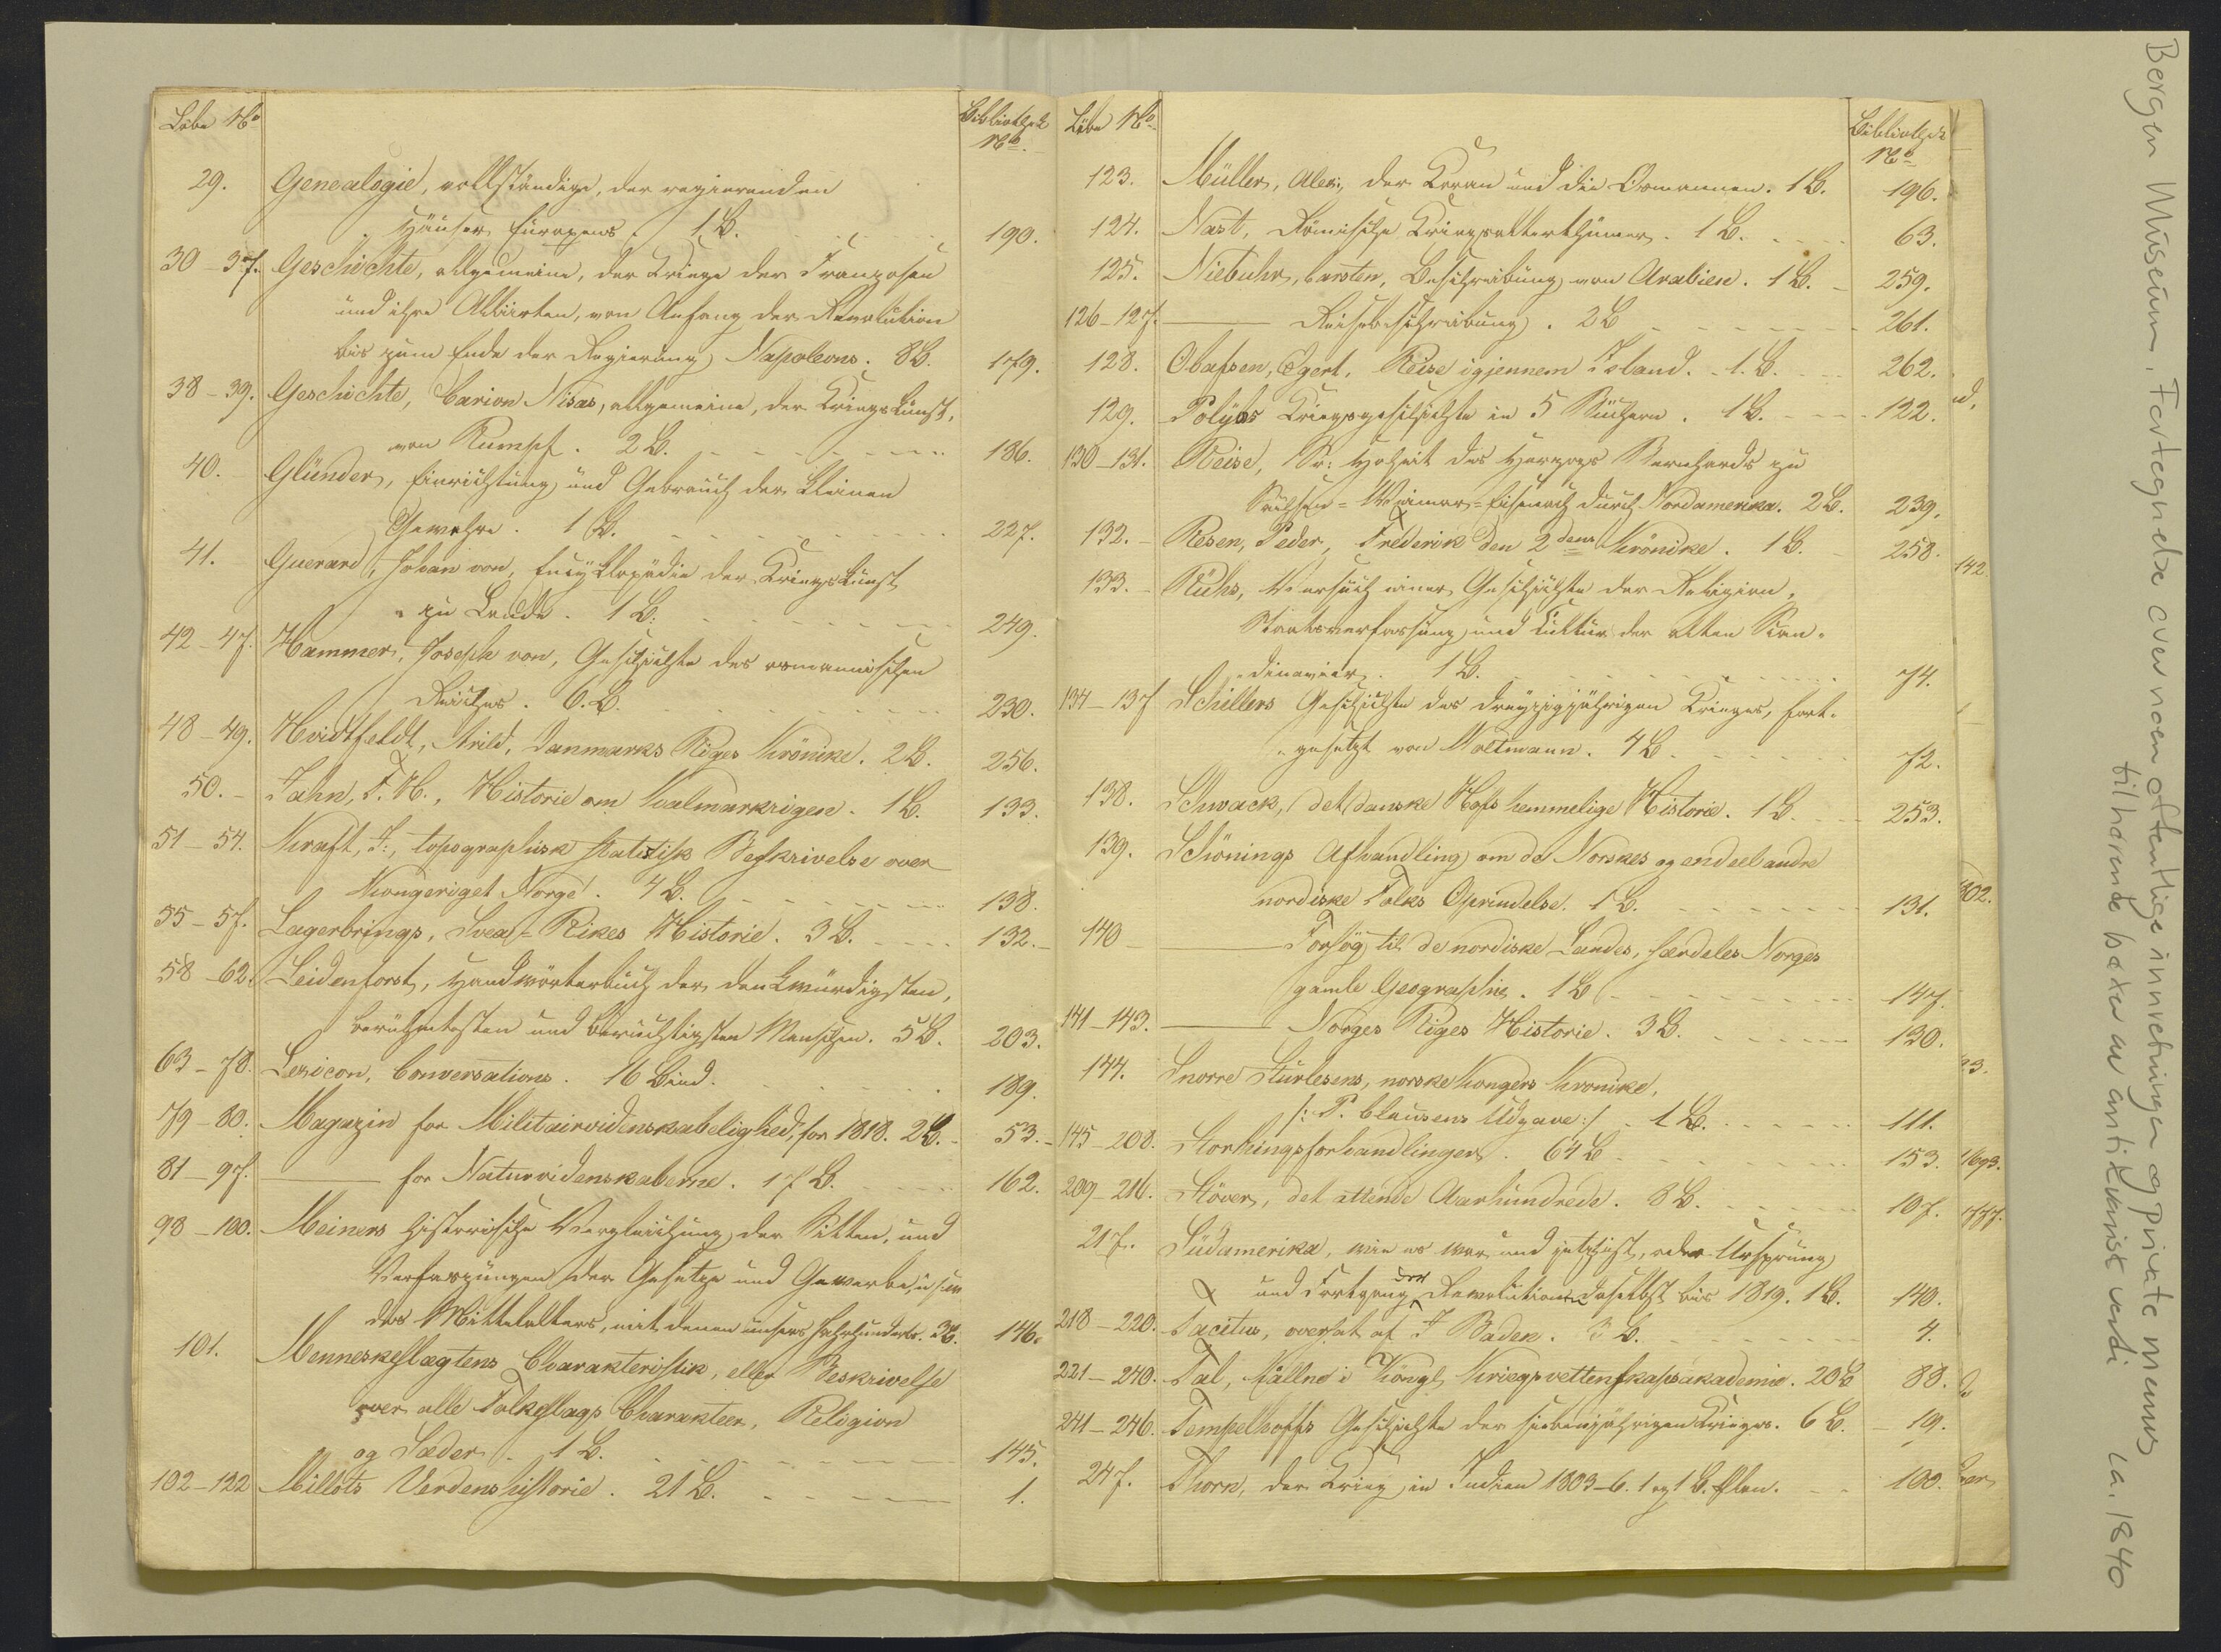 Löbe No Bibliothek No
29. Genealogie, vollständige, der regierenden
Häuser Europens. 1 B. 190.
30–37. Geschichte, allgemeine, der Kriege der Franzosen
und ihre Alliirten, von Anfang der Revolution
bis zum Ende der Regierung Napoleons. 8 B. 179.
38–39. Geschichte, Carion Nisas, allgemeine, der Kriegskunst,
von Rumpf. 2 B. 186.
40. Glünder, Einrichtung und Gebrauch der kleinen
Gewehre. 1 B. 227.
41. Guerard, Johan von, Encyklopädie der Kriegskunst
zu Lande. 1 B. 249.
42–47. Hammer, Joseph von, Geschichte des osmannischen
Reiches. 6. B. 230.
48–49. Hvidtfeldt, Arild, Danmarks Riges Krönike. 2 B. 256.
50. Jahn, F. H., Historie om Kalmarkrigen. 1 B. 133.
51–54. Kraft, J:, topographisk statistisk Beskrivelse over
Kongeriget Norge. 4 B. 138.
55–57. Lagerbrings, Svea-Rikes Historie. 3 B. 132.
58–62. Leidenforst, Handwörterbuch der denkwürdigsten,
berühmtesten und berüchtigsten Menschen. 5 B. 203.
63–78. Lexicon, Conversations. 16 Bind. 189.
79–80. Magazin for Militairvidenskabelighed, for 1818. 2 B. 53.
81–97. —— for Naturvidenskaberne. 17 B. 162.
98–100. Meiners historische Vergleichung der Sitten, und
Verfassungen der Gesetze und Gewerbe,
des Mittelalters, mit denen unsers Jahrhunderts. 3 B. 146.
101. Menneskeslægtens Charakteristik, eller Beskrivelse
over alle Folkeslags Charakteer, Religion
og Sæder. 1 B. 145.
102–122 Millots Verdenshistorie. 21 B. 1.
Löbe No Bibliothek No
123. Müller, Alex:, der Koran und die Osmannen. 1 B. 196.
124. Nast, Römische Kriegsalterthümer. 1 B. 63.
125. Niebuhr, Carsten, Beschreibung von Arabien. 1 B. 259.
126–127. —— Reisebeschreibung. 2 B 261.
128. Olafsen, Egert, Reise igjennem Island. 1. B. 262.
129. Polybs Kriegsgeschichte in 5 Büchern. 1 B. 122.
130–131. Reise, Sr: Hoheit des Herzogs Bernhards zu
Sachsen-Weimar-Eisenach durch Nordamerika. 2 B. 239.
132. Resen, Peder, Frederik den 2dens Krönike. 1 B. 258.
133. Rühs, Versuch einer Geschichte der Religion,
Staatsverfassung und Cultur der alten Scan-
dinavier. 1 B. 74.
134–137 Schillers Geschichte des dreyzigjährigen Krieges, fort-
gesetzt von Woltmann. 4 B. 72.
138. Schwack, det danske Hofs hemmelige Historie. 1 B. 253.
139. Schönings Afhandling om de Norskes og endeel andre
nordiske Folks Oprindelse. 1 B. 131.
140 —— Forsög til de nordiske Landes, særdeles Norges
gamle Geographie. 1 B 147.
141–143. —— Norges Riges Historie. 3 B. 130.
144. Snorre Sturlesens, norske Kongers Kronike,
/: P. Clausens Udgave :/. 1 B. 111.
145–208. Storthingsforhandlinger. 64 B 153.
209–216. Stöver, det attende Aarhundrede. 8 B. 107.
217. Südamerika, wie es war und jetzt ist, oder Ursprung
und Fortgang der Revolution daselbst bis 1819. 1 B. 140.
218–220. Tacitus, oversat af J Baden. 3 B. 4.
221–240. Tal, hållne i Kongl. Kriegsvettenskapsakademie. 20 B 88.
241–246. Tempelhoffs Geschichte des siebenjährigen Krieges. 6 B. 19.
247. Thorn, der Krieg in Indien 1803–6. 1 og 1 B. Plan. 100.
142
302.
Bergen Museum. Fortegnelse over noen offentlige innretninger og private menns
tilhørende bøker av antikvarisk verdi ca. 1840